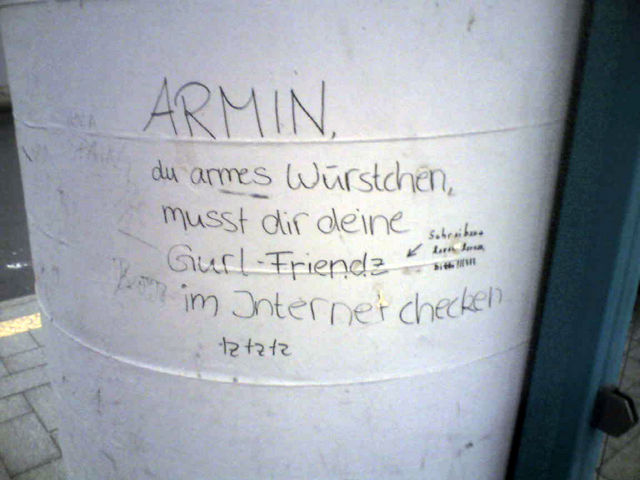 ARMIN,
du armes Würstchen,
musst dir deine
Gurl-Friendz
im Internet checken
tz tz tz